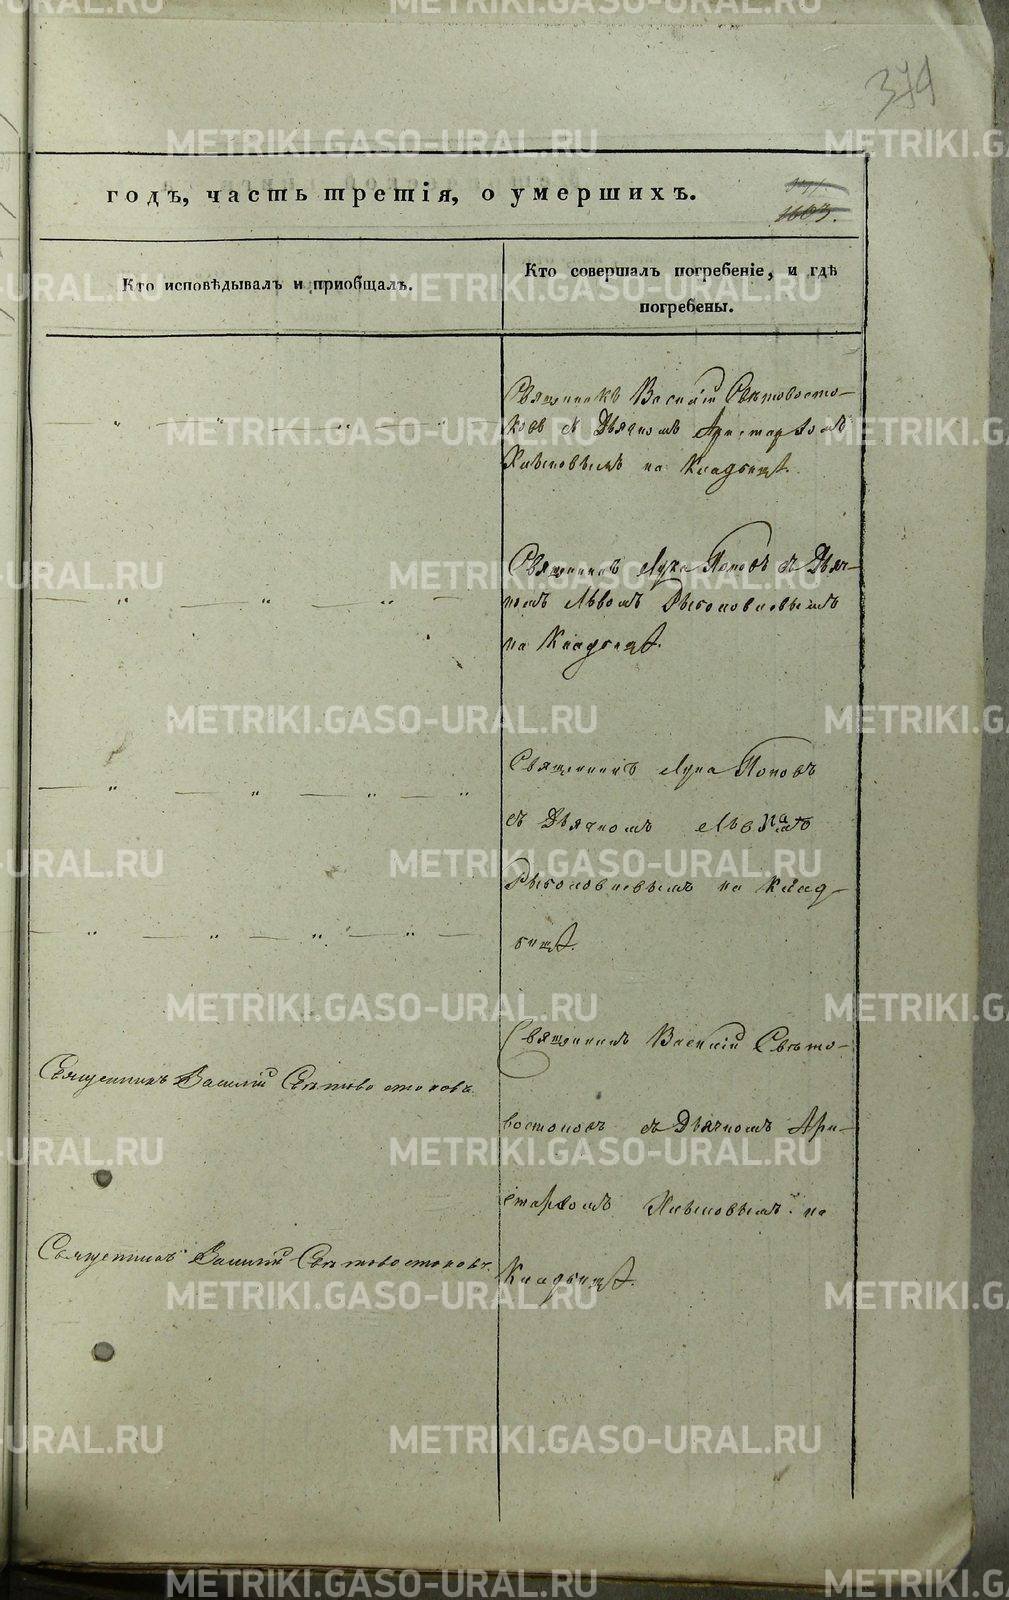 379
годъ, часть третія, о умершихъ.
1603.
Кто исповѣдывалъ и приобщалъ.
Кто совершалъ погребеніе, и гдѣ
погребены.
Священникъ Василій Свѣтовосто-
ковъ съ Дьячкомъ Аристархомъ
на Кладбищѣ.
Священникъ Лука Поповъ съ Дьяч-
комъ Львомъ Рыболовлевымъ
на Кладбищѣ.
Священникъ Лука Поповъ
съ Дьячкомъ
Рыболовлевымъ на Клад-
бищѣ.
Священникъ Василій Свѣто-
Священникъ Василій Свѣтовостоковъ.
востоковъ съ Дьячкомъ Ари-
стархомъ на
Священникъ Василій Свѣтовостоковъ.
Кладбищѣ.
METRIKI.GASO-URAL.RU